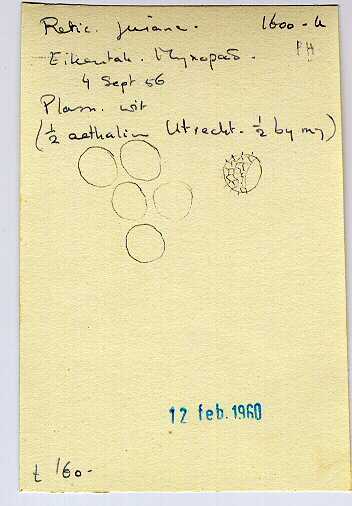 Retic. jurana. 1600-u
PH
Eikentak. Myxopad.
4 Sept 56
Plasm. wit
(½ aethalium Utrecht. ½ by my)
12 feb. 1960
t '60-